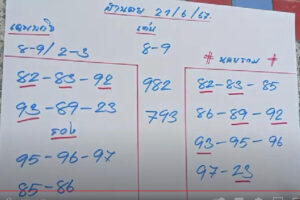 ฮานอย 21/6/67
เฉพาะกิจ
8-9/2-3
เด่น
8-9
82-83-92
93-89-23
รอง
95-96-97
85-86
982
793
# หลยราม #
82-83-85
86-89-92
93-95-96
97-23